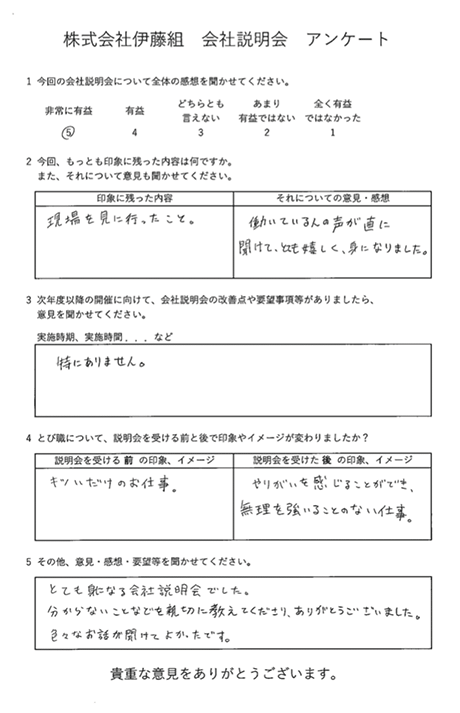 株式会社伊藤組　会社説明会　アンケート
1 今回の会社説明会について全体の感想を聞かせてください。
非常に有益　有益　どちらとも言えない　あまり有益ではない　全く有益ではなかった
5　4　3　2　1
2 今回、もっとも印象に残った内容は何ですか。
また、それについて意見も聞かせてください。
印象に残った内容　それについての意見・感想
現場を見に行ったこと。
働いている人の声が直に
聞けて、とても嬉しく、身になりました。
3 次年度以降の開催に向けて、会社説明会の改善点や要望事項等がありましたら、
意見を聞かせてください。
実施時期、実施時間．．．など
特にありません。
4 とび職について、説明会を受ける前と後で印象やイメージが変わりましたか？
説明会を受ける 前 の印象、イメージ　説明会を受けた 後 の印象、イメージ
キツいだけのお仕事。
やりがいを感じることができ、
無理を強いることのない仕事。
5 その他、意見・感想・要望等を聞かせてください。
とても身になる会社説明会でした。
分からないことなどを親切に教えてくださり、ありがとうございました。
色々なお話が聞けてよかったです。
貴重な意見をありがとうございます。